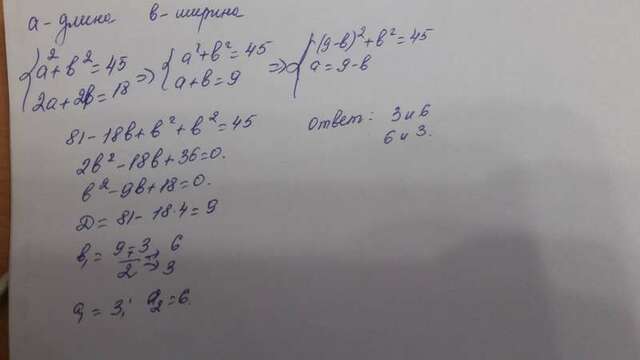 а - длина в - ширина
{a²+в²=45 => {a²+в²=45 => {(9-в)²+в²=45
2a+2в=18 a+в=9 a=9-в
81-18в+в²+в²=45
2в²-18в+36=0.
в²-9в+18=0.
D=81-18·4=9
в₁=(9±3)/2 => 6
3
a₁=3; a₂=6.
Ответ: 3 и 6
6 и 3.